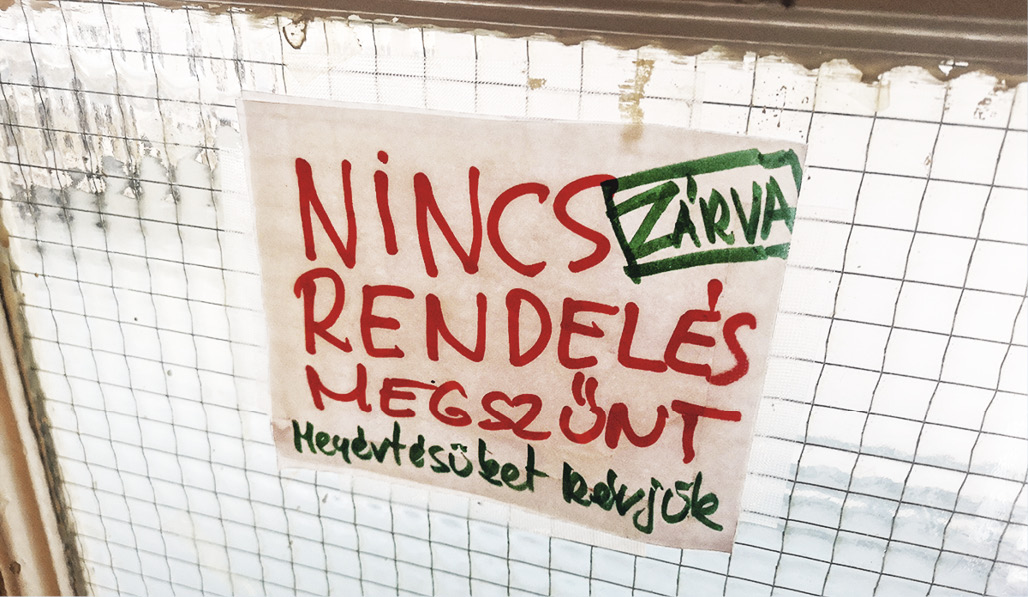 NiNCS ZÁRVA
RENDELÉS
MEGSZŰNT
Megértésüket kérjük